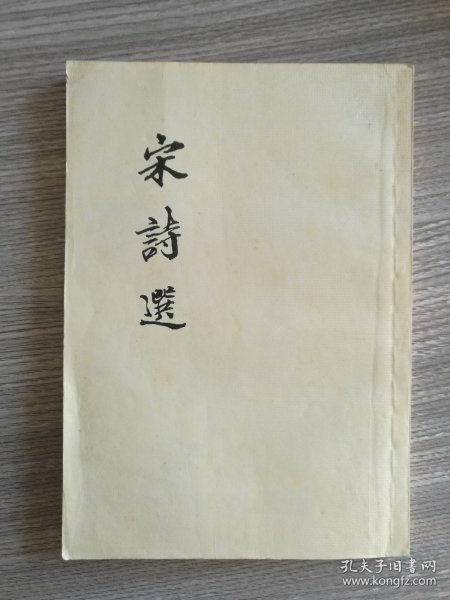 宋詩選
孔夫子旧书网
www.kongfz.com